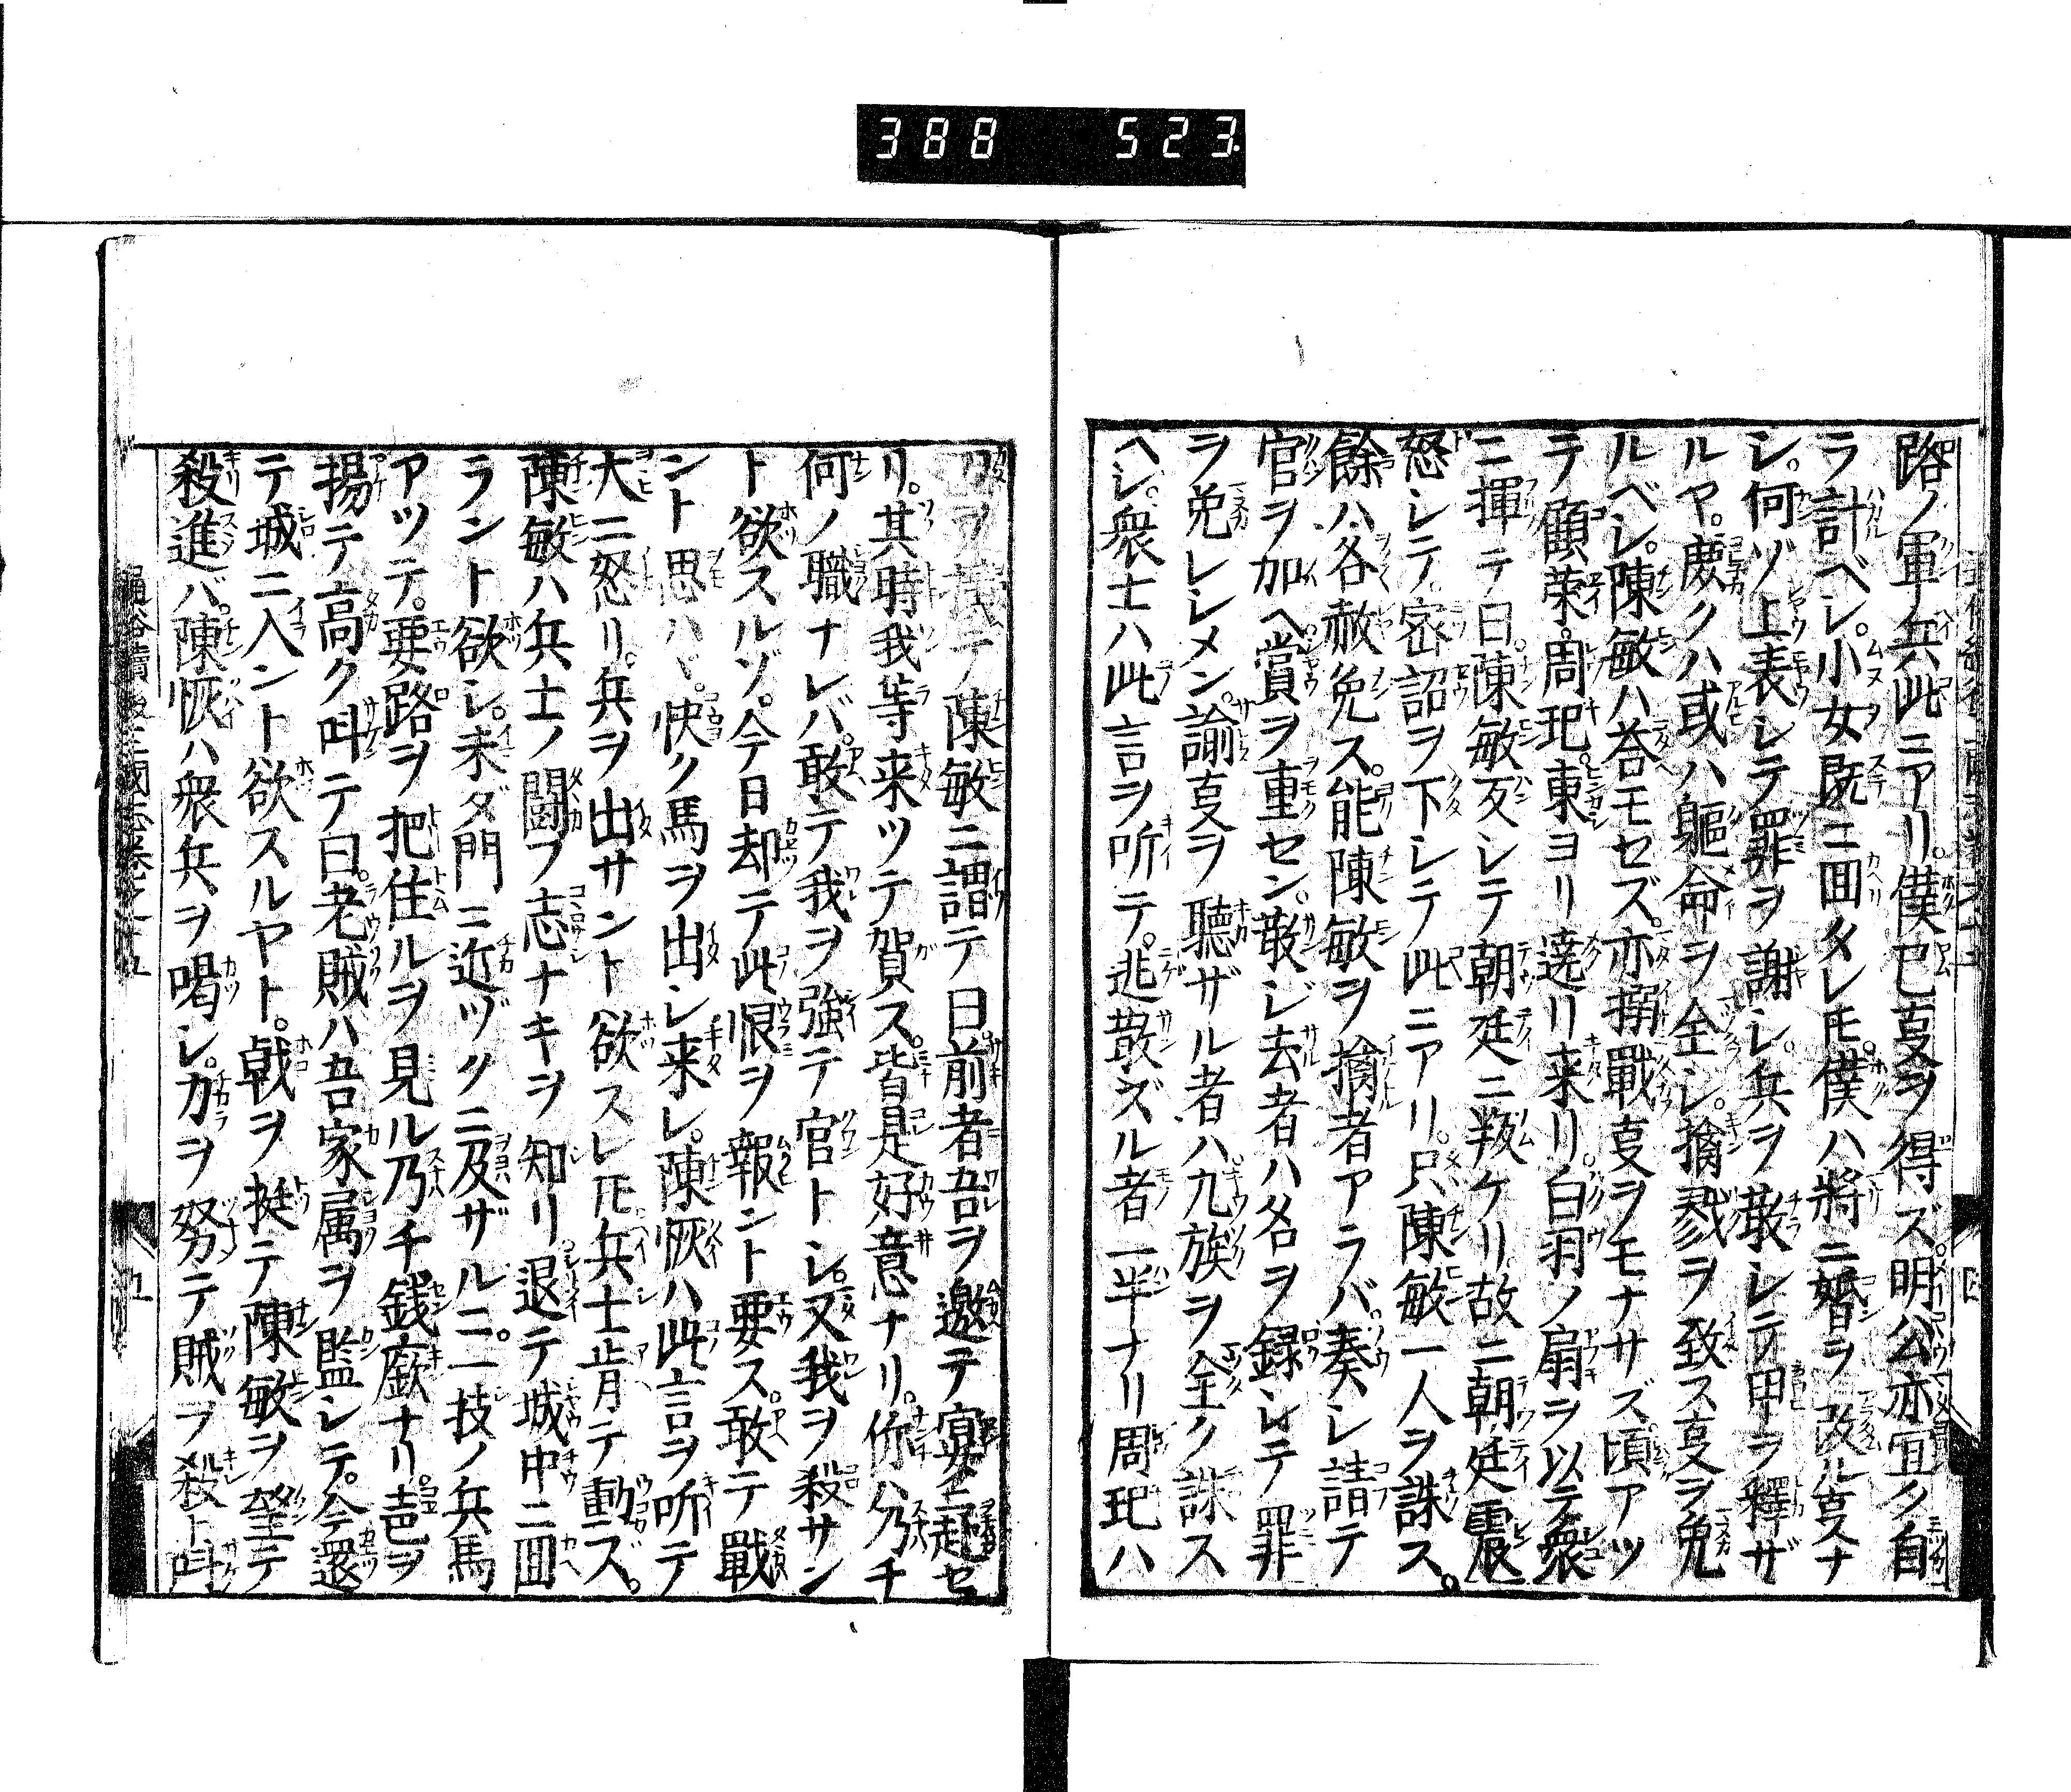 388 523
路ノ軍兵此ニアリ。僕已叓ヲ得ズ。明公亦宜ク自
ラ計ベシ。小女既ニ回タレ𪜈。僕ハ將ニ婚ヲ改ル叓ナ
シ。何ゾ上表シテ罪ヲ謝シ。兵ヲ散シテ甲ヲ釋ザ
ルヤ。庶クハ或ハ軀命ヲ全シ。擒戮ヲ致ス叓ヲ免
ルベシ。陳敏ハ荅モセズ。亦搦戰叓ヲモナサズ。頃アツ
テ顧榮。周玘。東ヨリ遶リ来リ。白羽ノ扇ヲ以テ衆
ニ揮テ曰。陳敏反シテ朝廷ニ叛ケリ故ニ朝廷震
怒シテ。密詔ヲ下シテ此ニアリ。只陳敏一人ヲ誅ス。
餘ハ各赦免ス。能陳敏ヲ擒者アラバ奏シ請テ
官ヲ加ヘ賞ヲ重セン。散ジ去者ハ名ヲ録シテ罪
ヲ免レシメン。諭叓ヲ聽ザル者ハ九族ヲ全ク誅ス
ヘシ。衆士ハ此言ヲ听テ。逃散ズル者一半ナリ周玘ハ
テ陳敏ニ謂テ曰。前者吾ヲ邀テ宴ニ赴セ
リ。其時我等来ツテ賀ス。皆是好意ナリ。你ハ乃チ
何ノ職ナレバ。敢テ我ヲ強テ官トシ。又我ヲ殺サン
ト欲スルゾ。今日却テ此恨ヲ報ント要ス。敢テ戰
ント思ハヾ。快ク馬ヲ出シ来レ。陳恢ハ此言ヲ听テ
大ニ怒リ。兵ヲ出サント欲スレ𪜈。兵士肯テ動ズ。
陳敏ハ兵士ノ闘フ志ナキヲ知リ。退テ城中ニ回
ラント欲シ。未ダ門ニ近ヅクニ及ザルニ。一技ノ兵馬
アツテ。要路ヲ把住ルヲ見ル乃チ錢廞ナリ。声ヲ
揚テ高ク叫テ曰。老賊ハ吾家属ヲ監シテ。今還
テ城ニ入ント欲スルヤト。戟ヲ挺テ陳敏ヲ望テ
殺進バ。陳恢ハ衆兵ヲ喝シ。力ヲ努テ賊ヲ殺ト叫
通俗續後三國志卷之十五
五